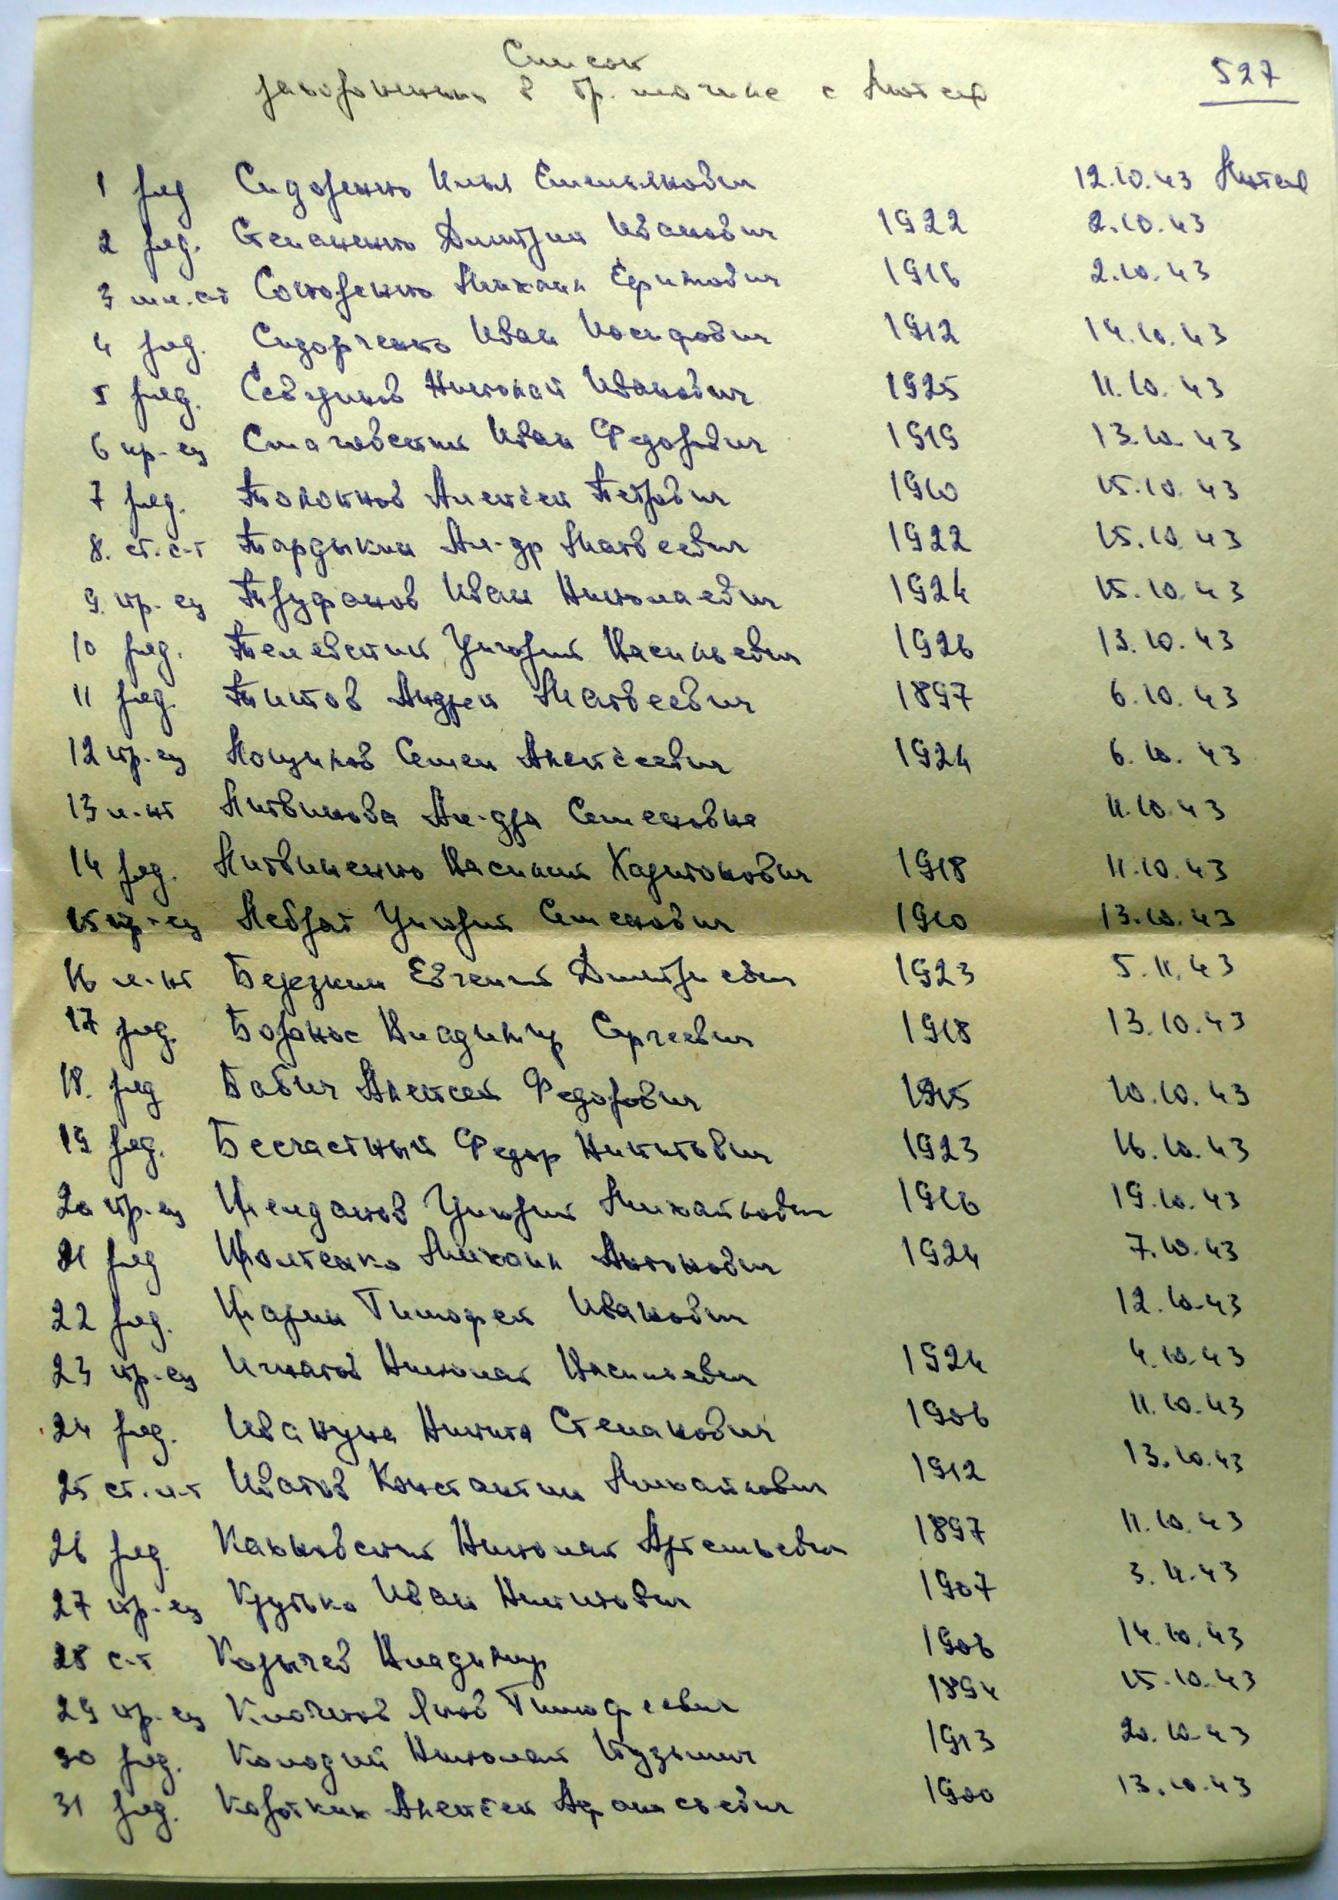 Список
захороненных в бр. могиле с Лютеж
527
1 ряд Сидоренко Илья Емельянович 12.10.43 Лютеж
2 ряд. Степаненко Дмитрий Иванович 1922 2.10.43
3 мл.с-т Михаил Ефимович 1916 2.10.43
4 ряд. Сидорченко Иван Иосифович 1912 14.10.43
5 ряд. Николай Иванович 1925 11.10.43
6 кр-ец Иван Федорович 1919 13.10.43
7 ряд. Толокнов Алексей Петрович 1910 15.10.43
8. ст.с-т Тардыкин Ал-др Матвеевич 1922 15.10.43
9. кр-ец Труфанов Иван Николаевич 1924 15.10.43
10 ряд. Григорий Васильевич 1926 13.10.43
11 ряд. Титов Андрей Матвеевич 1897 6.10.43
12 кр-ец Семен Алексеевич 1924 6.10.43
13 л-нт Литвинова Ал-дра Семеновна 11.10.43
14 ряд. Литвиненко Василий Харитонович 1918 11.10.43
15 кр-ец Григорий Семенович 1910 13.10.43
16 л-нт Березкин Евгений Дмитриевич 1923 5.11.43
17 ряд. Владимир Сергеевич 1918 13.10.43
18. ряд Бабич Алексей Федорович 1915 10.10.43
19 ряд. Бесчастный Федор Никитович 1923 16.10.43
20 кр-ец Григорий Михайлович 1916 19.10.43
21 ряд Михаил Антонович 1924 7.10.43
22 ряд. Тимофей Иванович 12.10.43
23 кр-ец Игнатов Николай Васильевич 1924 4.10.43
24 ряд. Никита Степанович 1906 11.10.43
25 ст.л-т Константин Михайлович 1912 13.10.43
26 ряд. Николай Артемьевич 1897 11.10.43
27 кр-ец Крутько Иван Никитович 1907 3.11.43
28 с-т Владимир 1906 14.10.43
29 кр-ец Яков Тимофеевич 1894 15.10.43
30 ряд. Колодий Николай Кузьмич 1913 20.10.43
31 ряд. Короткин Алексей Афанасьевич 1900 13.10.43